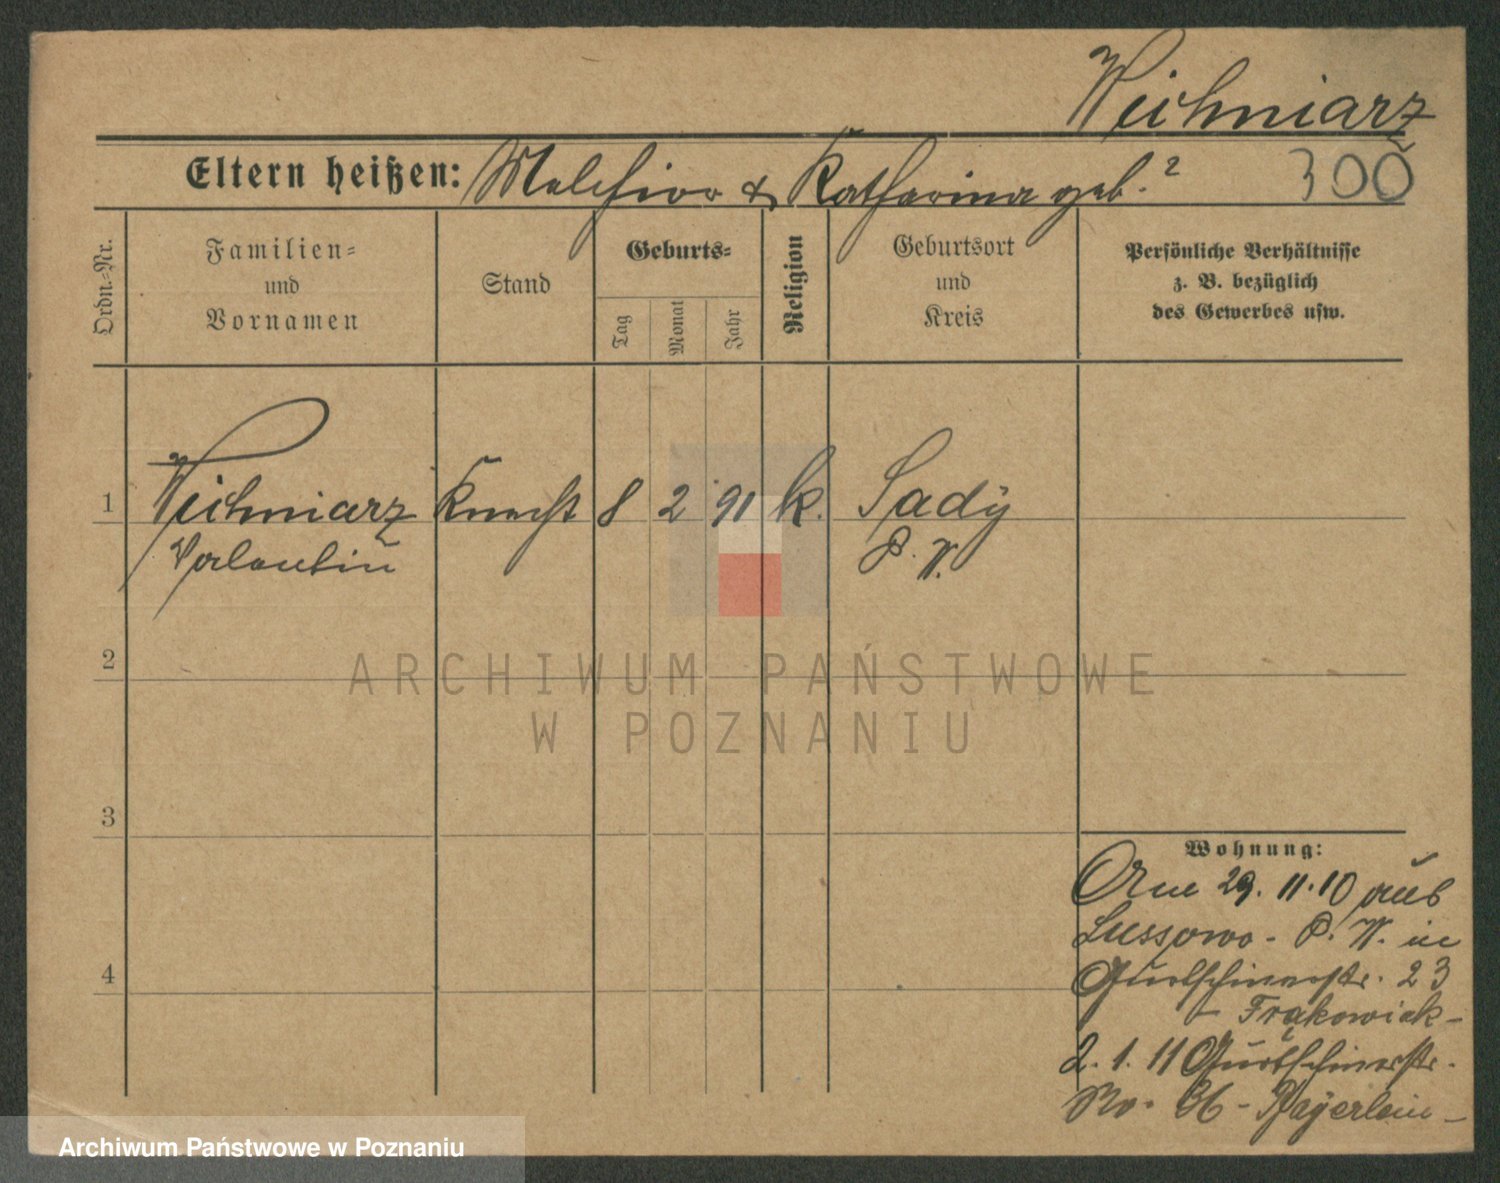 Weihniarz
Eltern heißen: Melchior & Katharina geb. ?
300
Ordn.-Nr.
Familien-
und
Vornamen
Stand
Geburts-
Tag
Monat
Jahr
Religion
Geburtsort
und
Kreis
Persönliche Verhältnisse
z. B. bezüglich
des Gewerbes usw.
1 Weihniarz Knecht 8 2 91 k. Sady
Valentin P. W.
2
ARCHIWUM PAŃSTWOWE
W POZNANIU
3
Wohnung:
Am 29. 11. 10 aus
Lussowo - P. W. in
4
Gurtschinerstr. 23
- Frąkowiak -
2. 1. 11 Gurtschinerstr.
No. - Bayerlein -
Archiwum Państwowe w Poznaniu